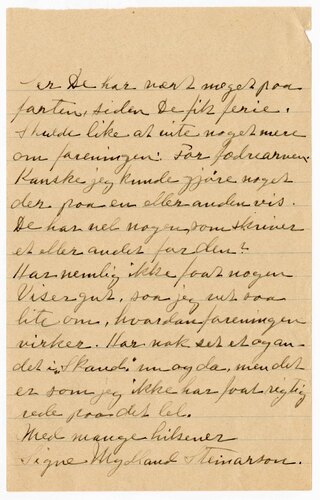 ser De har vært meget paa
farten, siden De fik ferie.
Skulde like at vite noget mere
om foreningen: For fædrearven.
Kanske jeg kunde gjøre noget
der paa en eller anden vis.
De har vel nogen som skriver
et eller andet for den?
Har nemlig ikke faat nogen
Visergut, saa jeg vet saa
lite om, hvordan foreningen
virker. Har nok set et og an-
det i "Skand." nu og da, men det
er som jeg ikke har faat rigtig
rede paa det lel.
Med mange hilsener
Signe Mydland Steinarson.